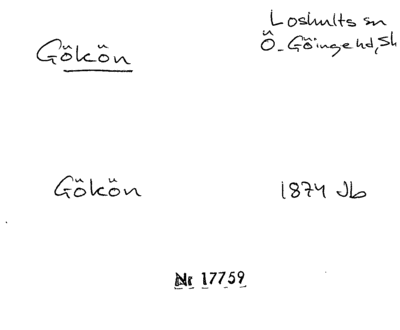 Gökön
Loshults sn
Ö. Göinge hd, Sk
Gökön
1874 Jb
Nr 17759